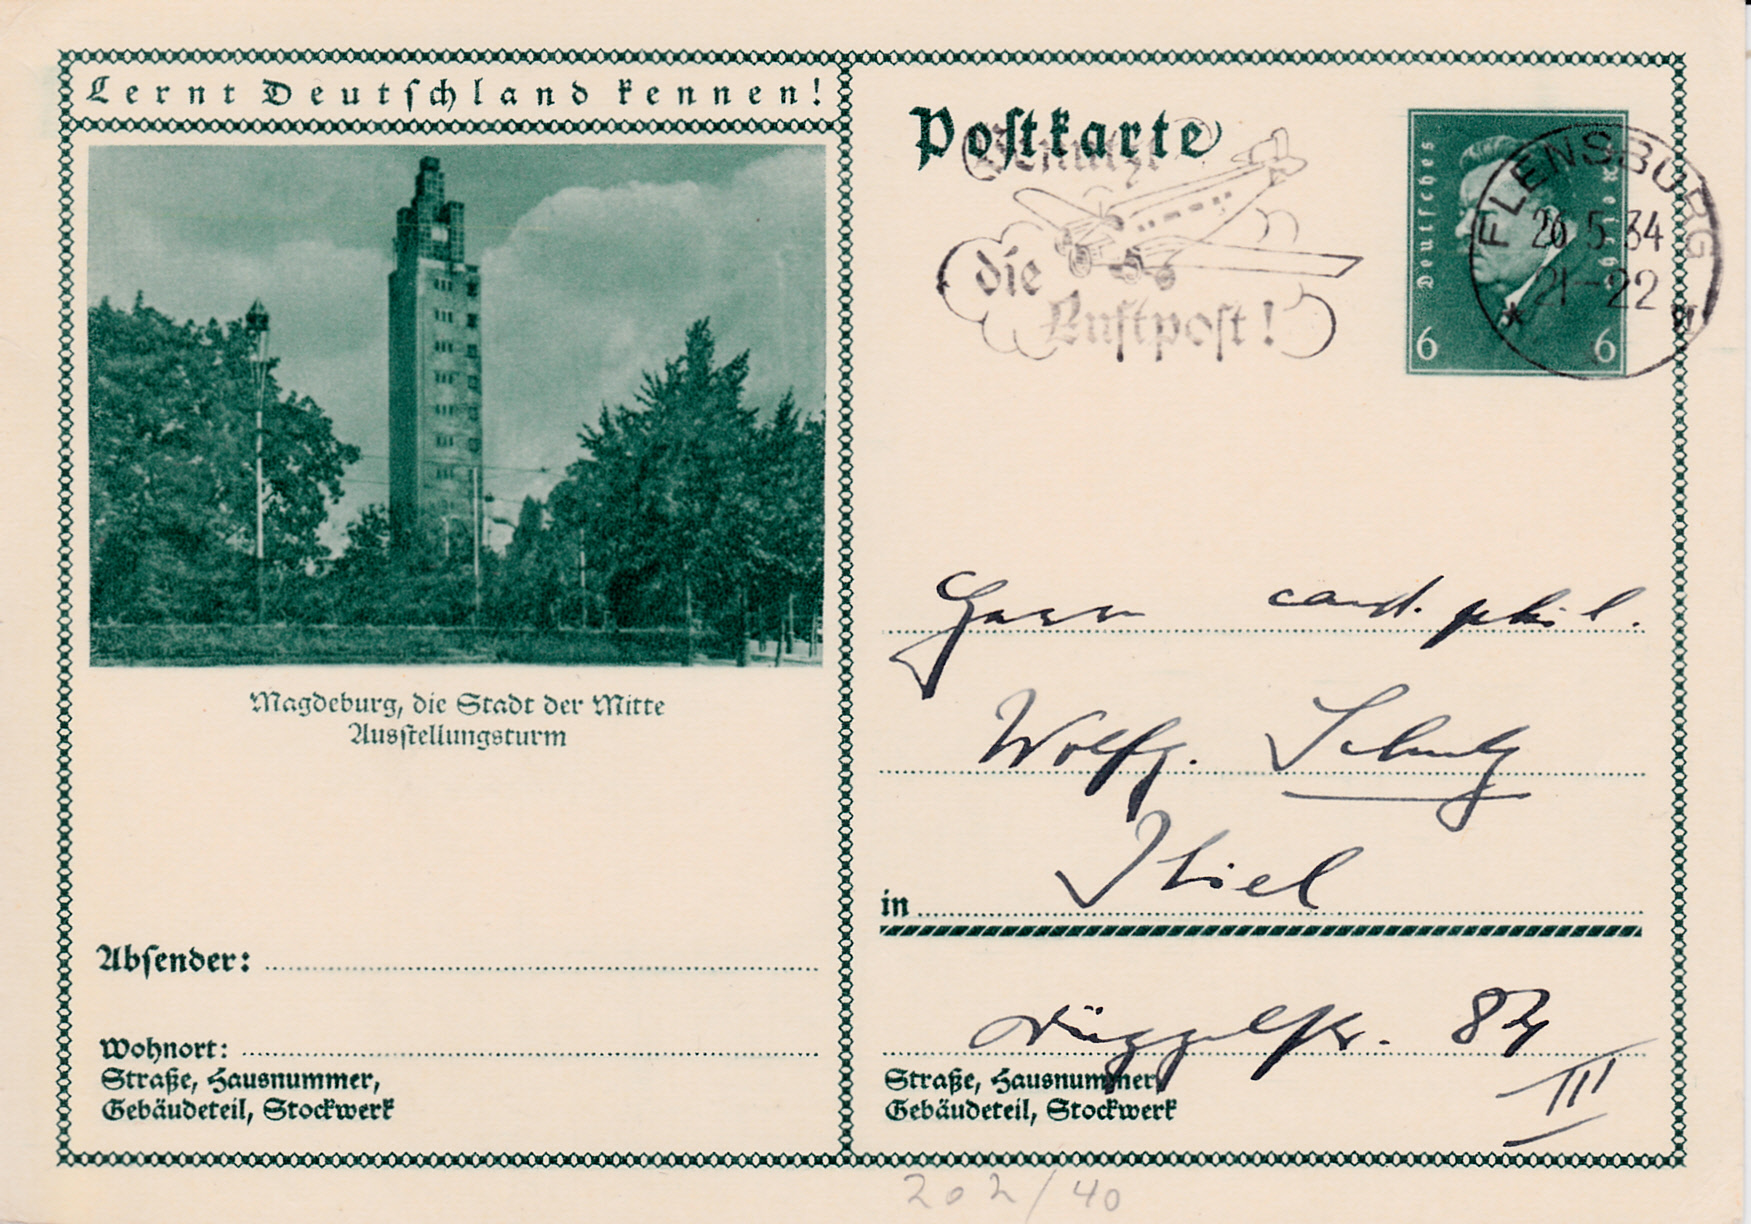 Lernt Deutschland kennen!
Magdeburg, die Stadt der Mitte
Ausstellungsturm
Absender:
Wohnort:
Straße, Hausnummer,
Gebäudeteil, Stockwerk
Postkarte
Benutzt
die
Luftpost!
Deutsches Reich
6 6
FLENSBURG
26.5.34
21-22
* 1
Herrn cand. phil.
Wolfg. Schulz
in Kiel
83
III
Straße, Hausnummer,
Gebäudeteil, Stockwerk
202/40